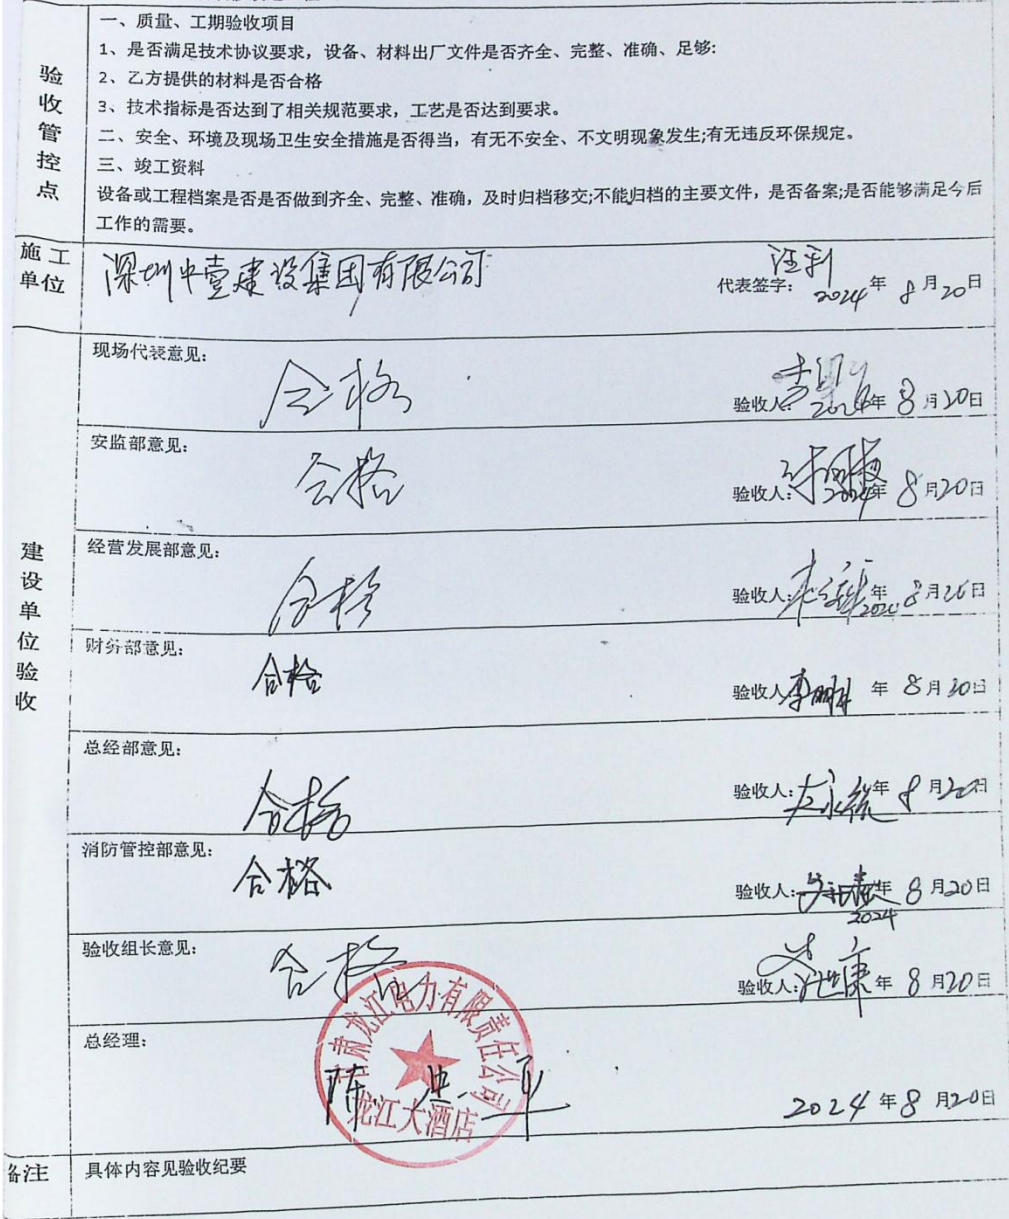 一、质量、工期验收项目
1、是否满足技术协议要求，设备、材料出厂文件是否齐全、完整、准确、足够:
2、乙方提供的材料是否合格
3、技术指标是否达到了相关规范要求，工艺是否达到要求。
二、安全、环境及现场卫生安全措施是否得当，有无不安全、不文明现象发生;有无违反环保规定。
三、竣工资料
设备或工程档案是否是否做到齐全、完整、准确，及时归档移交;不能归档的主要文件，是否备案;是否能够满足今后
工作的需要。
验收管控点
施工单位
深圳中壹建设集团有限公司
代表签字: 汪利
2024年8月20日
建设单位验收
现场代表意见:
合格
验收人: 2024年8月20日
安监部意见:
合格
验收人: 2024年8月20日
经营发展部意见:
合格
验收人: 2024年8月26日
财务部意见:
合格
验收人 年8月30日
总经部意见:
合格
验收人: 年8月20日
消防管控部意见:
合格
验收人: 年8月20日
2024
验收组长意见:
合格
验收人: 年8月20日
总经理:
陈忠平
甘肃龙江电力有限责任公司
龙江大酒店
2024年8月20日
备注
具体内容见验收纪要